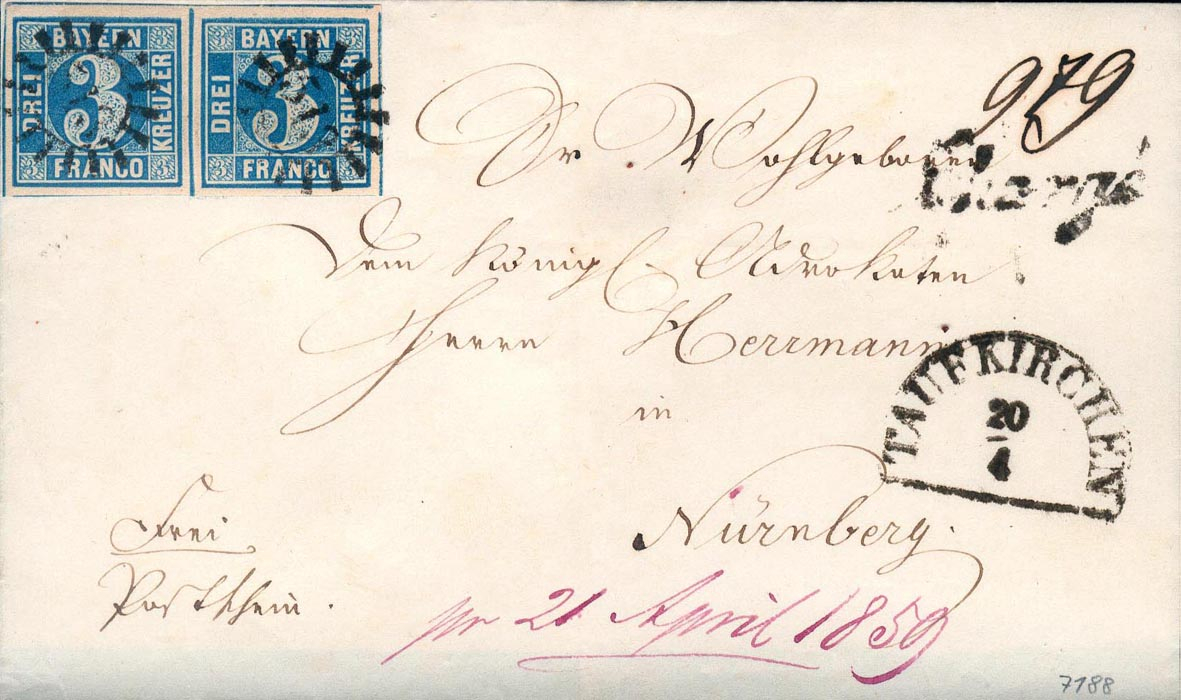 BAYERN
DREI
3
KREUZER
FRANCO
BAYERN
DREI
3
KREUZER
FRANCO
979
Sr Wohlgeboren
Chargé
Dem Königl. Advokaten
Herrn Herrmann
in
TAUFKIRCHEN
20
4
Nürnberg.
Frei
Postschein.
pr 21 April 1859
7188